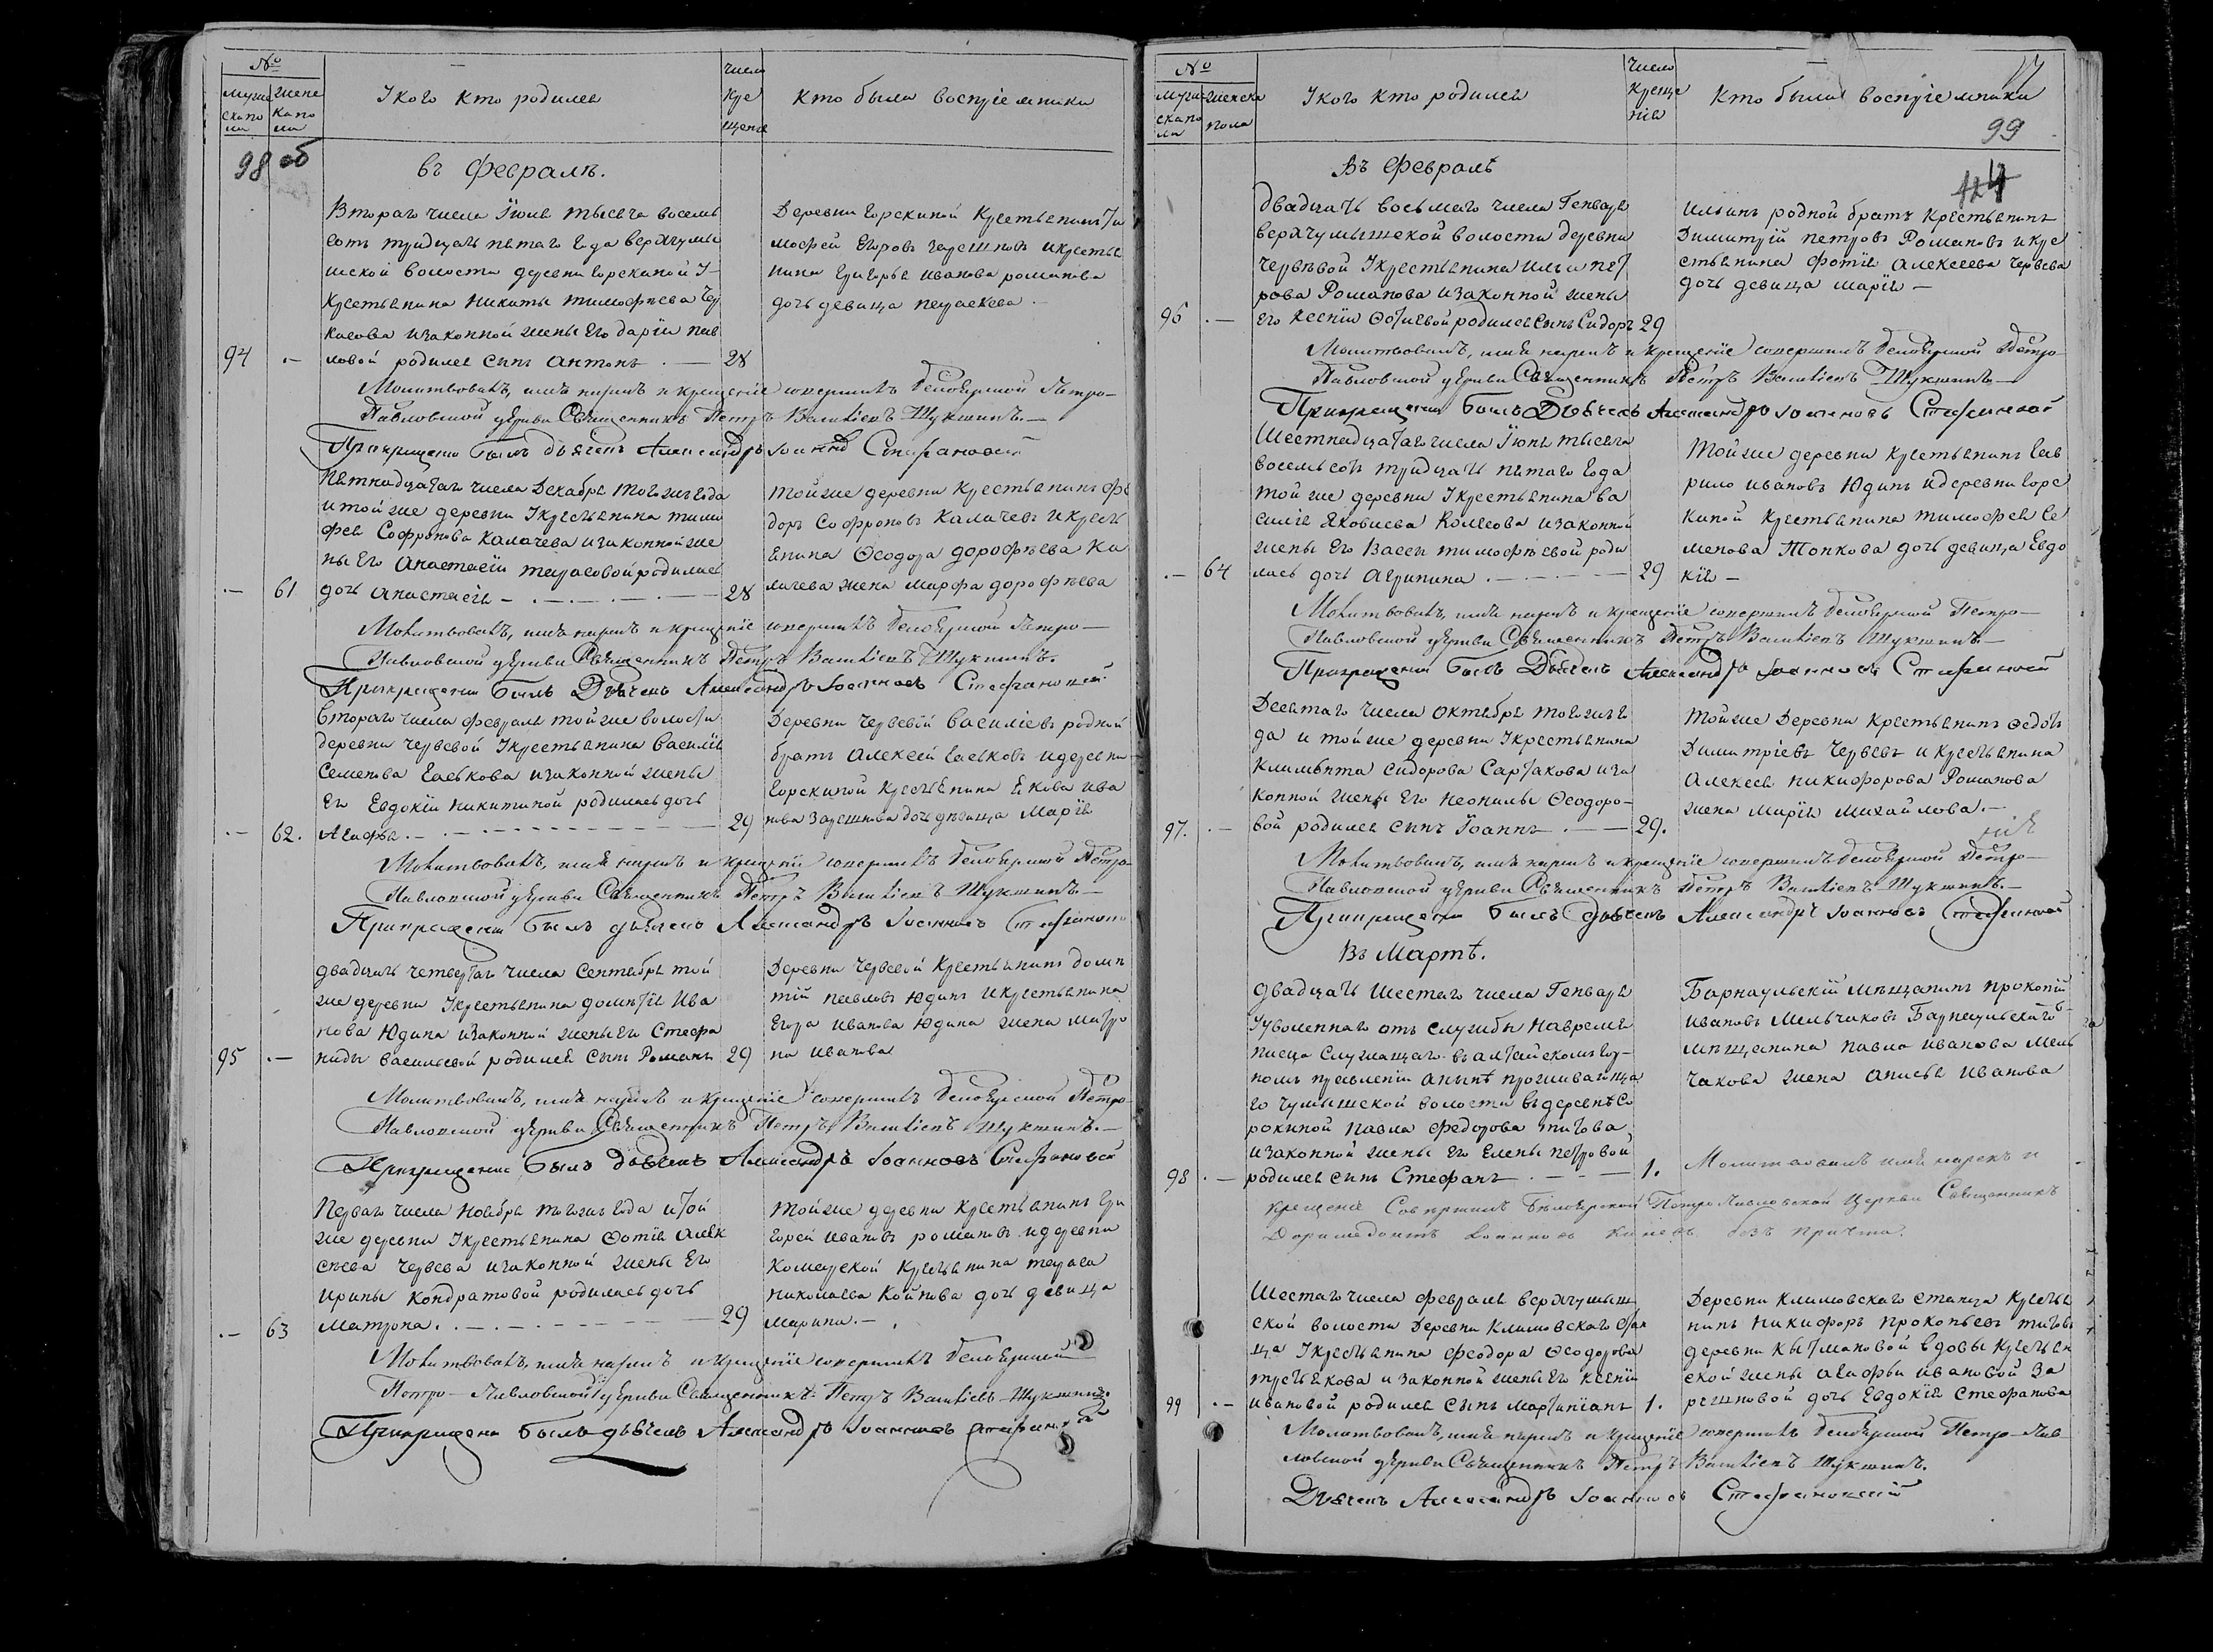 №
Мужескаполи
Женскаполи
У кого кто родился
число крещения
Кто были восприемники
98 об
въ Февралѣ.
Втораго числа Іюля тысяча восемь
сотъ тридцать пятаго года верхчумы
шской волости деревни Горскиной У
крестьянина никиты тимофѣева Чер
касова изаконной жены Его даріи пав
94 .— ловой родился сынъ антонъ . — 28
Деревни Горскиной Крестьянинъ Ти
мофей Егоровъ икрестья
нина Григорья иванова романова
дочь девица параскева
Молитвовалъ, имя нарекъ и крещеніе совершилъ белоярской Петро-
Павловской церкви Священникъ Петръ Васильевъ Шукшинъ.—
Прикрещеніи былъ дьячекъ Александръ Іоанновъ Стефановской
Пятнадцатаго числа Декабря тогожъ года
итойже деревни Укрестьянина тимо
фея Софронова Калачева изаконной же
ны Его анастасіи тарасовой родилась
.— 61 дочь анастасія — 28
тойже деревни крестьянинъ фе
доръ Софроновъ Калачевъ икресть
янина Ѳеодора дорофѣева Ка
лачева жена марфа дорофѣева
Молитвовалъ, имя нарекъ и крещеніе совершилъ белоярской Петро—
Павловской церкви Священникъ Петръ Васильевъ Шукшинъ.
Прикрещеніи былъ Дьячекъ Александръ Іоанновъ Стефановской
Втораго числа февраля тойже волости
деревни червевой Укрестьянина василія
Семенова Еськова изаконной жены
Его Евдокіи никитиной родилась дочь
.— 62. Агафья — 29
Деревни червевой василіевъ родной
братъ алексей Еськовъ идеревни
Горскиной крестьянина Якова ива
нова Зарешнова дочь дѣвица Марія
Молитвовалъ, имя нарекъ и крещеніе совершилъ белоярской Петро
Павловской церкви Священникъ Петръ Васильевъ Шукшинъ—
Прикрещеніи былъ дьячекъ Александръ Іоанновъ Стефановской
двадцать четвертаго числа Сентября той
же деревни Укрестьянина дометія Ива
нова Юдина изаконной жены Его Стефа
95 .— ниды васильевой родился сынъ Романъ 29
Деревни червевой Крестьянинъ доме
тій павловъ Юдинъ икрестьянина
Егора иванова Юдина жена матро
на иванова
Молитвовалъ, имя нарекъ и крещеніе совершилъ белоярской Петро
Павловской церкви Священникъ Петръ Васильевъ Шукшинъ.—
Прикрещеніи былъ дьячекъ Александръ Іоанновъ Стефановской
Перваго числа ноября тогожъ года итой
же деревни Укрестьянина Ѳотія алек
сѣева червева изаконной жены Его
ирины кондратовой родилась дочь
.— 63 матрона. — 29
тойже деревни крестьянинъ Гри
горей ивановъ романовъ идеревни
Комарской крестьянина тараса
николаева Койнова дочь девица
марина.—
Молитвовалъ, имя нарекъ и крещеніе совершилъ белоярской
Петро-Павловской церкви Священникъ Петръ Васильевъ Шукшинъ.
Прикрещеніи былъ дьячекъ Александръ Іоанновъ Стефановской
№
Мужескаполи
Женска пола
У кого кто родился
Число крещенія
Кто были воспріемники
99
Въ Февралѣ
двадцать восьмаго числа Генваря
верхчумышской волости деревни
червевой Укрестьянина ильи пет
рова Романова изаконной жены
96 .— Его ксеніи Ѳотіевой родился сынъ Сидоръ 29
ильинъ родной братъ крестьянинъ
Димитрій петровъ Романовъ икре
стьянина фотія алексеева червева
дочь девица марія —
Молитвовалъ, имя нарекъ и крещеніе совершилъ белоярской Петро-
Павловской церкви Священникъ Петръ Васильевъ Шукшинъ—
Прикрещеніи былъ Дьячекъ Александръ Іоанновъ Стефановской
Шестнадцатаго числа Іюня тысяча
восемьсотъ тридцать пятаго года
той же деревни Укрестьянина ва
силія Яковлева Колесова изаконной
жены Его Васеи тимофѣевой роди
.— 64 лась дочь агрипина . — 29
Тойже деревни крестьянинъ Гав
рило ивановъ Юдинъ идеревни Горс
киной крестьянина тимофея Се
менова Топкова дочь девица Евдо
кія —
Молитвовалъ, имя нарекъ и крещеніе совершилъ белоярской Петро—
Павловской церкви Священникъ Петръ Васильевъ Шукшинъ—
Прикрещеніи былъ Дьячекъ Александръ Іоанновъ Стефановской
Десятаго числа Октября тогожъ го
да и тойже деревни Укрестьянина
Климента Сидорова Сартакова иза
конной жены Его неонилы Ѳеодоро-
97. .— вой родился сынъ Іоаннъ — 29.
тойже Деревни крестьянинъ Ѳедотъ
Димитріевъ червевъ и крестьянина
алексея никифорова Романова
жена марія михайлова.—
Молитвовалъ, имя нарекъ и крещеніе совершилъ белоярской Петро—
Павловской церкви Священникъ Петръ Васильевъ Шукшинъ.—
Прикрещеніи былъ дьячекъ Александръ Іоанновъ Стефановской
Въ Мартѣ.
двадцать Шестаго числа Генваря
Ууволеннаго отъ службы навремя
писца Служащаго въ алтайскомъ гор-
номъ правленіи анынѣ проживающа
го чумышской волости въдеревнѣ Со
рокиной павла федорова титова
изаконной жены его Елены петровой
98 .— родился сынъ Стефанъ . — 1.
Барнаульскій мѣщанинъ прокопій
ивановъ Мельчаковъ Барнаульскаго
мѣщанина павла иванова мель
чакова жена анисья иванова
Молитвовалъ имя нарекъ и
крещеніе Совершилъ Белоярской Петро Павловской Церкви Священникъ
Доримедонтъ Іоанновъ безъ причта.
Шестаго числа февраля верхчумыш
ской волости Деревни Климовскаго стан
ца Укрестьянина феодора Ѳеодорова
третьякова изаконной жены Его ксеніи
99 .— ивановой родился сынъ мартиніанъ 1.
Деревни климовскаго станца крестья
нинъ никифоръ прокопьевъ титовъ
деревни кытмановой вдовы крестьян
ской жены агафьи ивановой За
решновой дочь Евдокія Стефанова
Молитвовалъ, имя нарекъ и крещеніе совершилъ белоярской Петро-Пав-
ловской церкви Священникъ Петръ Васильевъ Шукшинъ.
Дьячекъ Александръ Іоанновъ Стефановскій